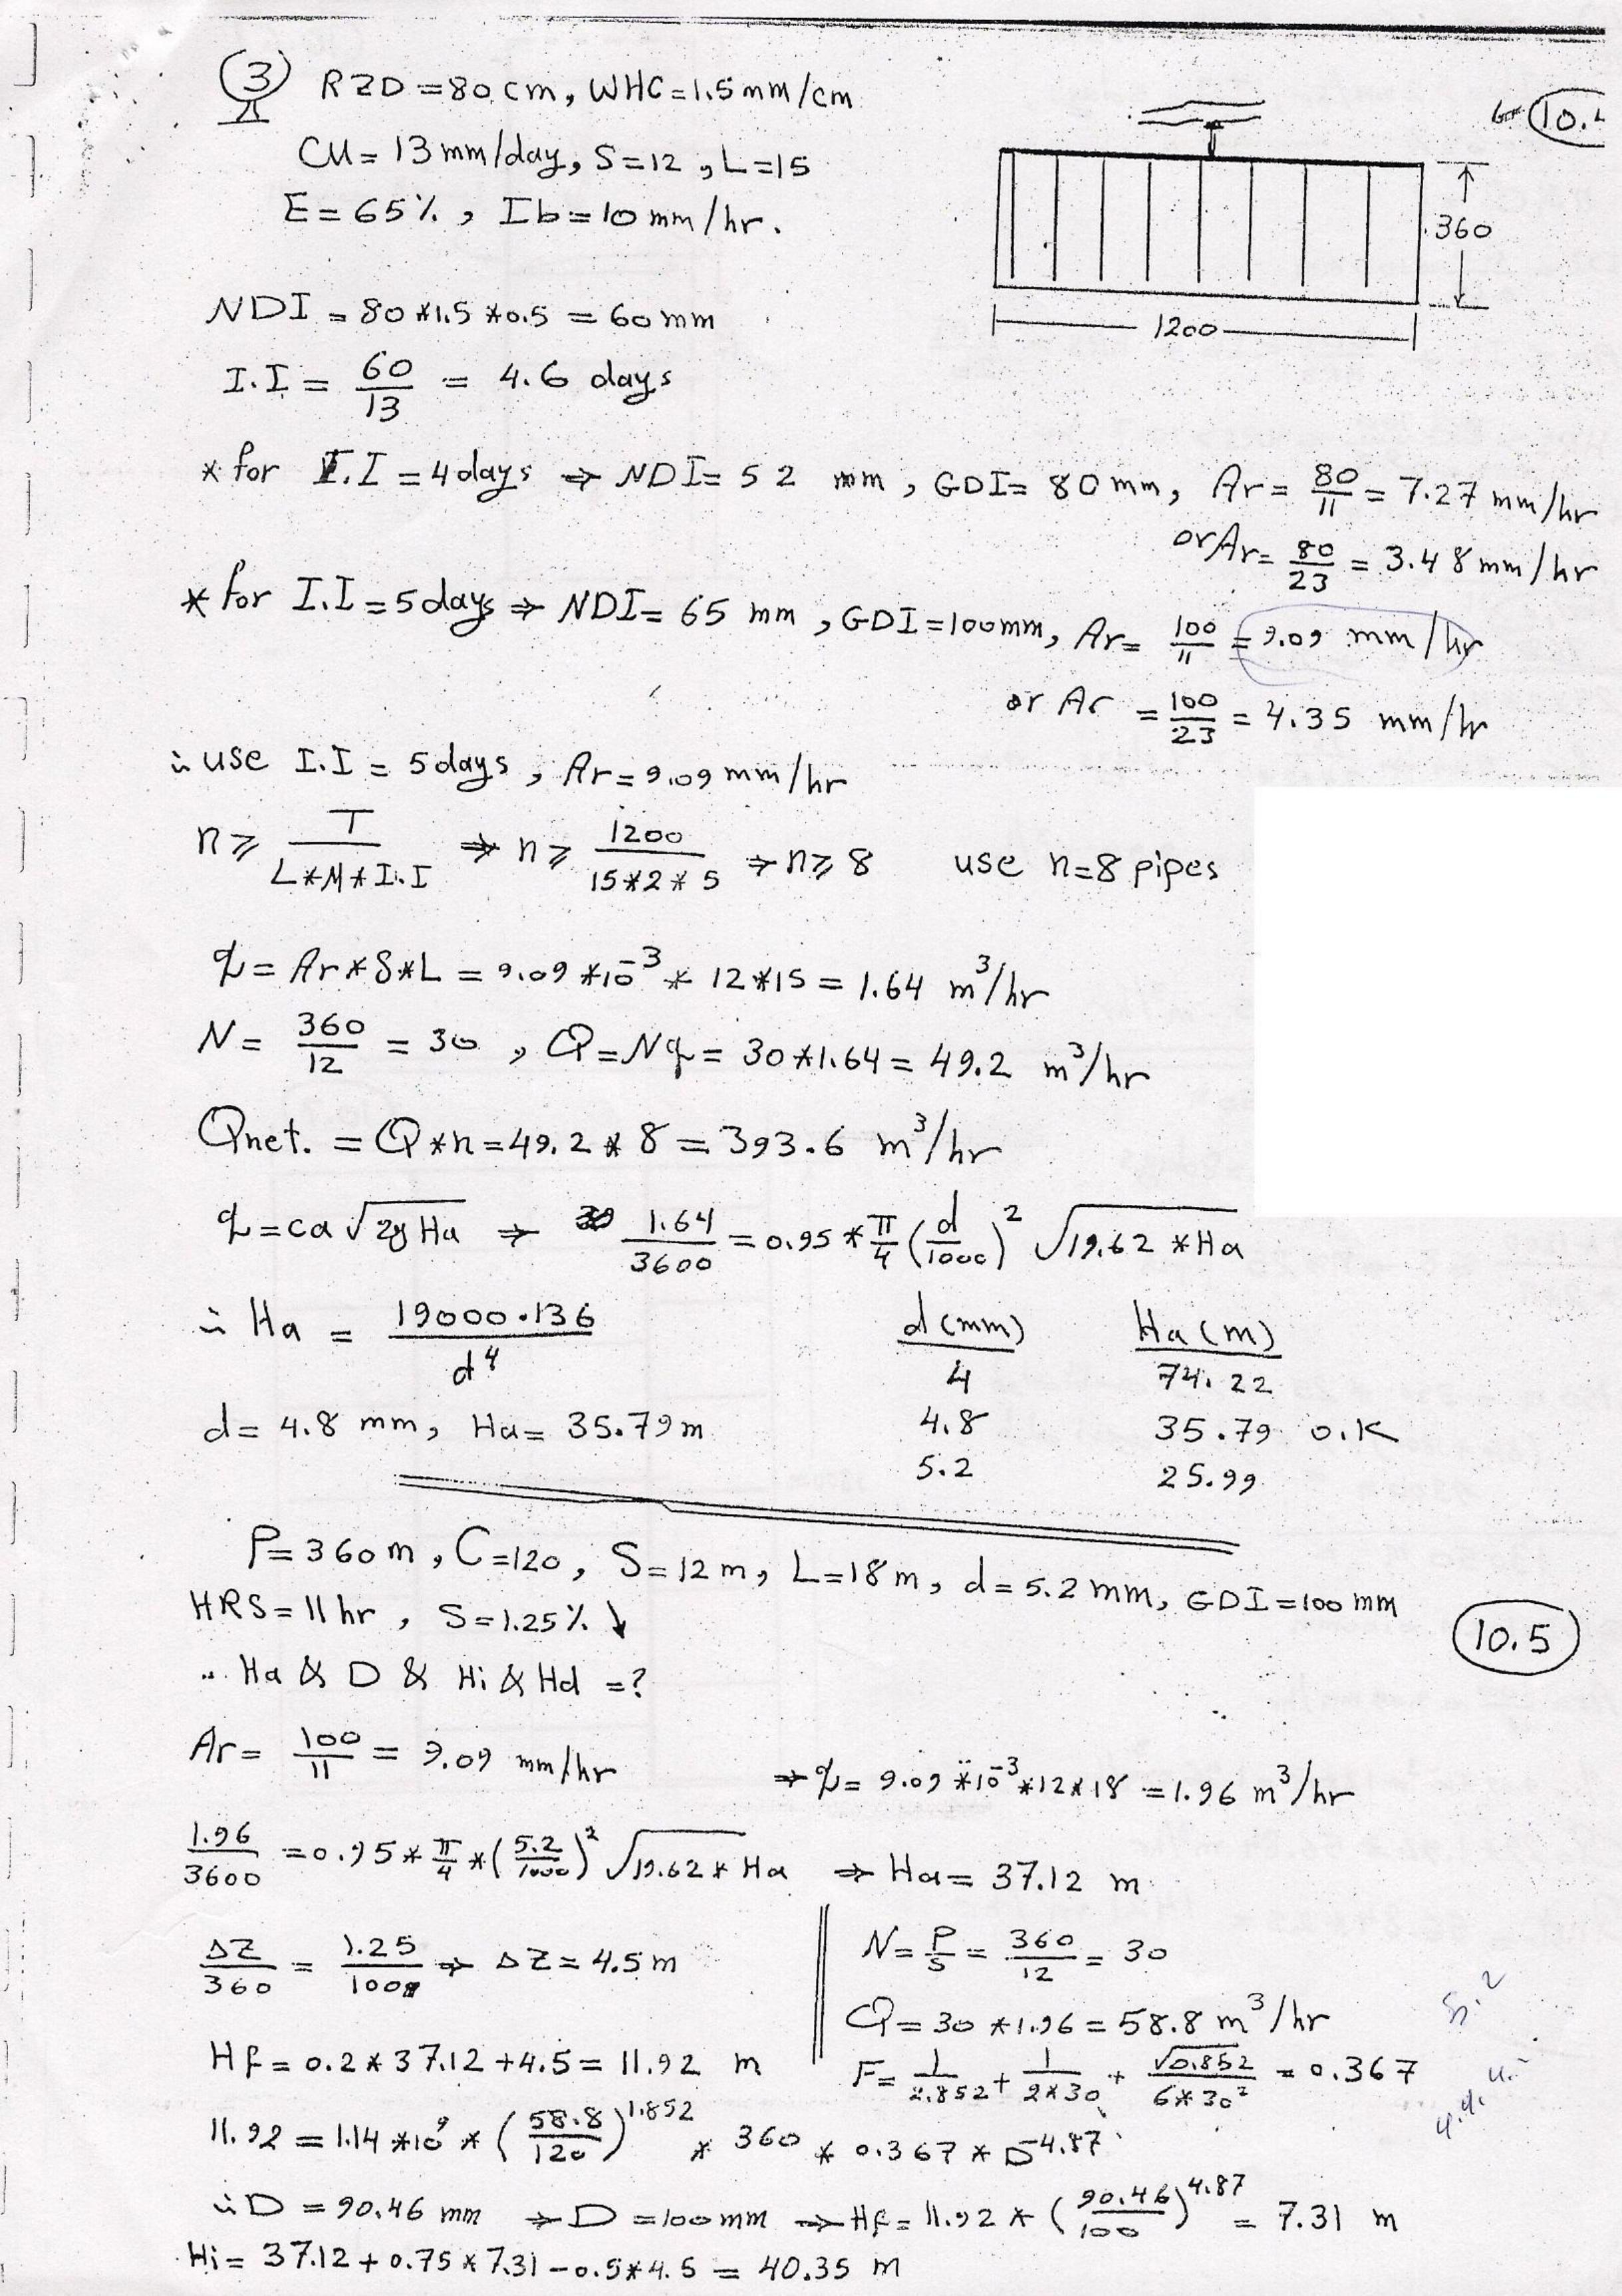 3 RZD = 80 cm, WHC = 1.5 mm/cm
10.
CU = 13 mm/day, S = 12, L = 15
E = 65 %, Ib = 10 mm/hr.
360
1200
NDI = 80 * 1.5 * 0.5 = 60 mm
I.I = 60/13 = 4.6 days
* for I.I = 4 days ⇒ NDI = 52 mm, GDI = 80 mm, Ar = 80/11 = 7.27 mm/hr
or Ar = 80/23 = 3.48 mm/hr
* for I.I = 5 days ⇒ NDI = 65 mm, GDI = 100 mm, Ar = 100/11 = 9.09 mm/hr
or Ar = 100/23 = 4.35 mm/hr
∴ use I.I = 5 days, Ar = 9.09 mm/hr
n ≥ T/(L*M*I.I) ⇒ n ≥ 1200/(15*2*5) ⇒ n ≥ 8 use n = 8 pipes
q = Ar * S * L = 9.09 * 10^-3 * 12 * 15 = 1.64 m³/hr
N = 360/12 = 30, Q = Nq = 30 * 1.64 = 49.2 m³/hr
Qnet. = Q * n = 49.2 * 8 = 393.6 m³/hr
q = ca √(2g Ha) ⇒ 1.64/3600 = 0.95 * π/4 (d/1000)² √(19.62 * Ha)
∴ Ha = 19000.136/d⁴
d (mm) Ha (m)
4 74.22
4.8 35.79 O.K
5.2 25.99
d = 4.8 mm, Ha = 35.79 m
P = 360 m, C = 120, S = 12 m, L = 18 m, d = 5.2 mm, GDI = 100 mm
HRS = 11 hr, S = 1.25 % ↓
10.5
∴ Ha & D & Hi & Hd = ?
Ar = 100/11 = 9.09 mm/hr ⇒ q = 9.09 * 10^-3 * 12 * 18 = 1.96 m³/hr
1.96/3600 = 0.95 * π/4 * (5.2/1000)² √(19.62 * Ha) ⇒ Ha = 37.12 m
ΔZ/360 = 1.25/100 ⇒ ΔZ = 4.5 m
N = P/S = 360/12 = 30
Q = 30 * 1.96 = 58.8 m³/hr
5.2
Hf = 0.2 * 37.12 + 4.5 = 11.92 m
F = 1/2.852 + 1/(2*30) + √0.852/(6*30²) = 0.367
11.92 = 1.14 * 10⁹ * (58.8/120)^1.852 * 360 * 0.367 * D^-4.87
∴ D = 90.46 mm ⇒ D = 100 mm ⇒ Hf = 11.92 * (90.46/100)^4.87 = 7.31 m
Hi = 37.12 + 0.75 * 7.31 - 0.5 * 4.5 = 40.35 m